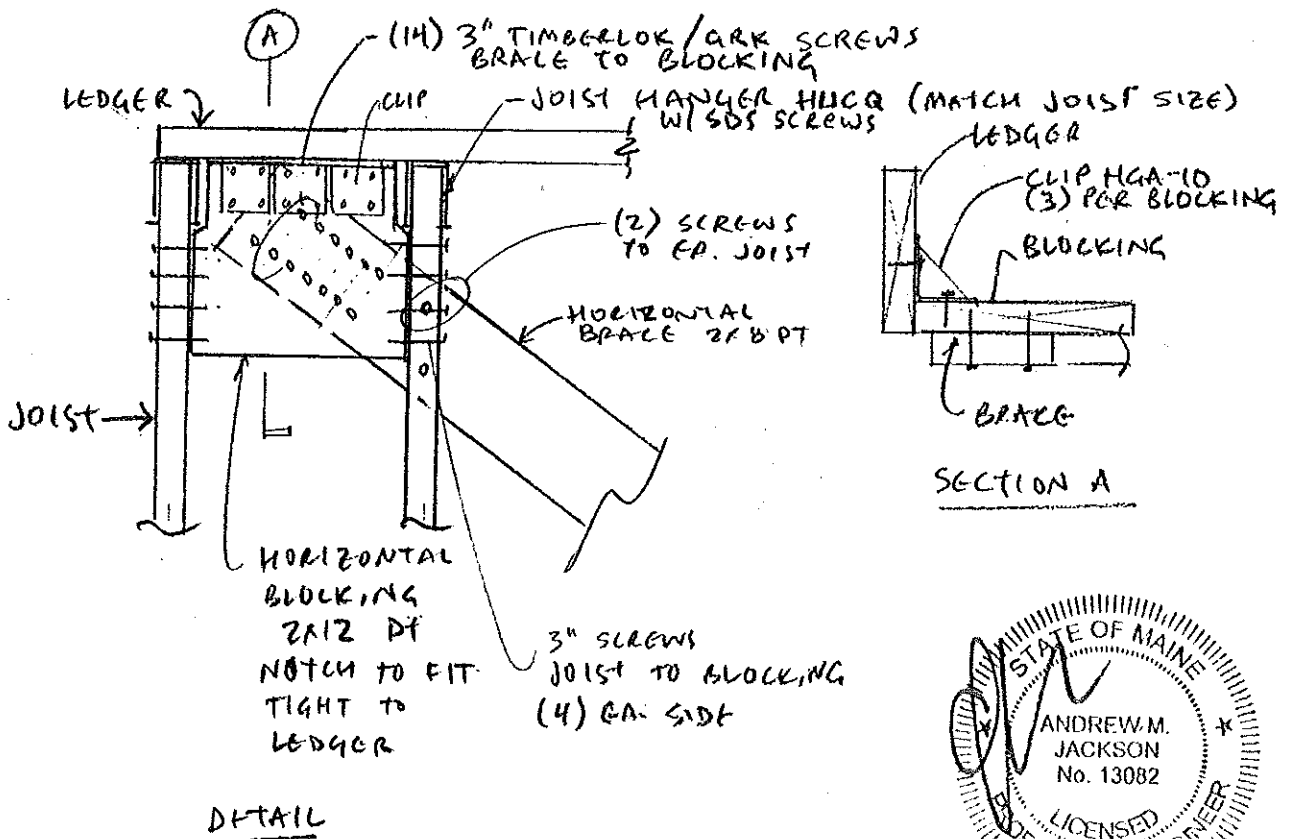 A
(14) 3" TIMBERLOK/GRK SCREWS
BRACE TO BLOCKING
LEDGER
CLIP
JOIST HANGER HUCQ (MATCH JOIST SIZE)
W/ SDS SCREWS
LEDGER
CLIP HGA-10
(3) PER BLOCKING
BLOCKING
(2) SCREWS
TO EA. JOIST
HORIZONTAL
BRACE 2x8 PT
JOIST
BRACE
SECTION A
HORIZONTAL
BLOCKING
2x12 PT
NOTCH TO FIT
TIGHT TO
LEDGER
3" SCREWS
JOIST TO BLOCKING
(4) EA. SIDE
DETAIL
STATE OF MAINE
ANDREW M.
JACKSON
No. 13082
LICENSED